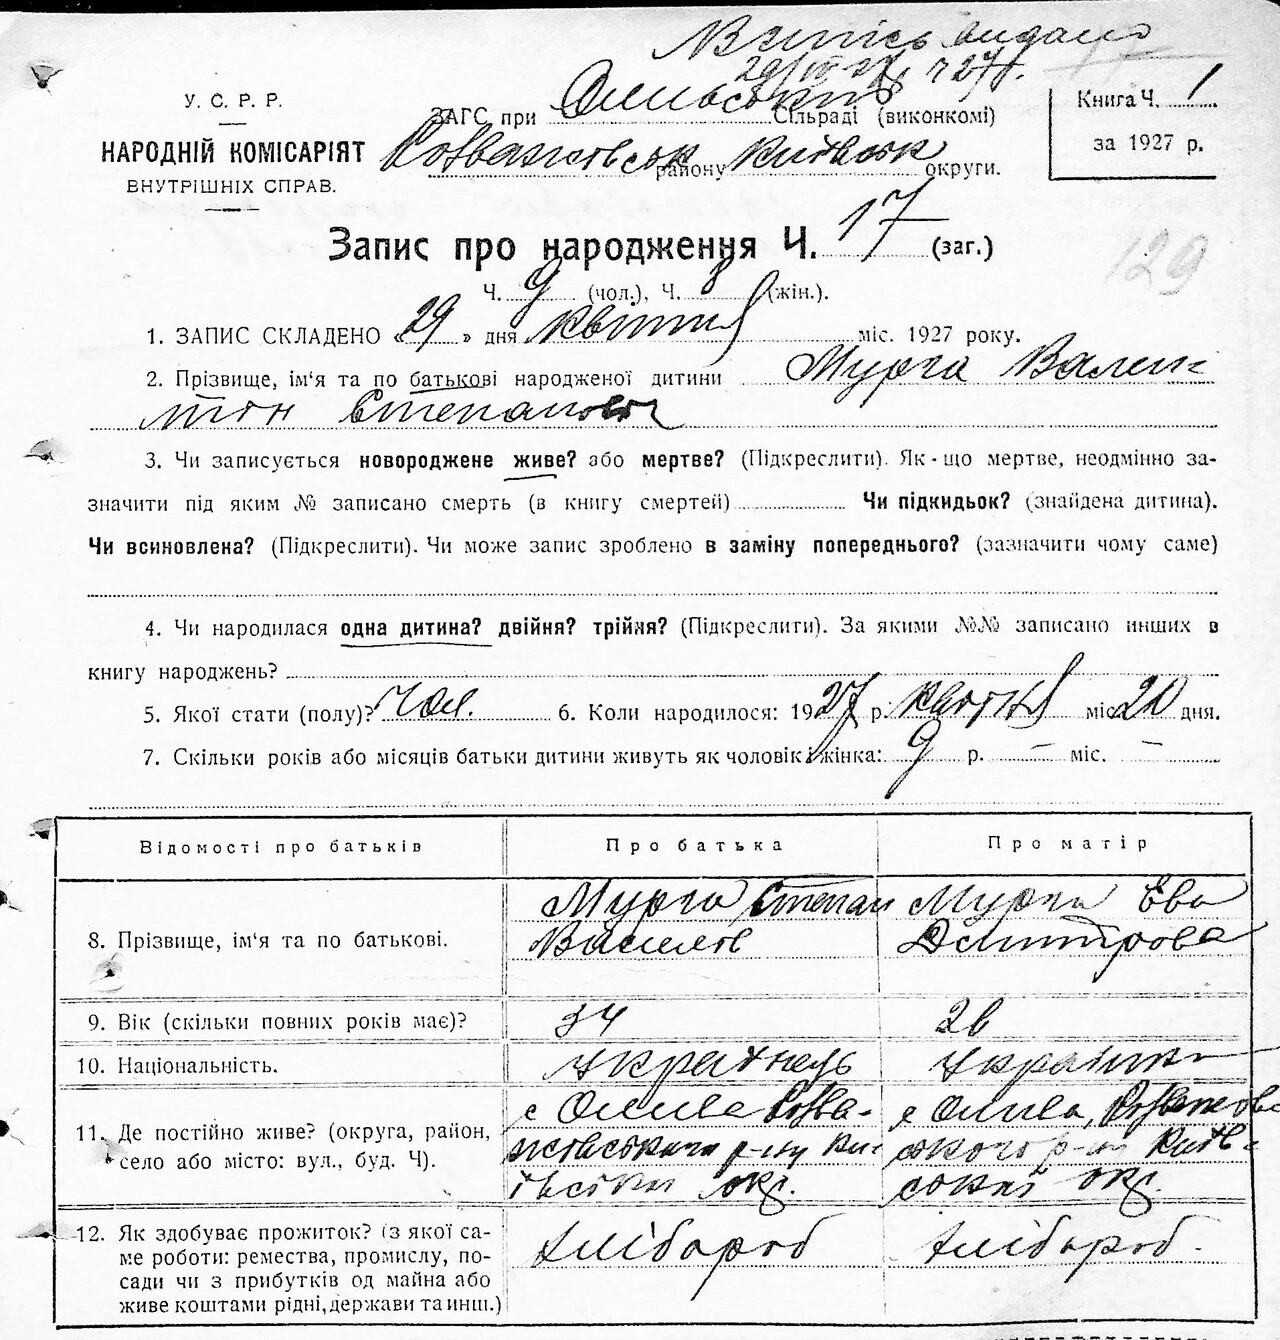 Випись видано
29/VII-27 р. Ч 27
У. С. Р. Р.
НАРОДНІЙ КОМІСАРІЯТ
ВНУТРІШНІХ СПРАВ.
ЗАГС при Оливської Сільраді (виконкомі)
Розважівськ району Київськ округи.
Книга Ч. 1
за 1927 р.
Запис про народження Ч. 17 (заг.)
129
Ч. 9 (чол.), Ч. 8 (жін.).
1. ЗАПИС СКЛАДЕНО «29» дня квітня міс. 1927 року.
2. Прізвище, ім'я та по батькові народженої дитини Мурга Вален-
тин Степанович
3. Чи записується новороджене живе? або мертве? (Підкреслити). Як-що мертве, неодмінно за-
значити під яким № записано смерть (в книгу смертей) Чи підкидьок? (знайдена дитина).
Чи всиновлена? (Підкреслити). Чи може запис зроблено в заміну попереднього? (зазначити чому саме)
4. Чи народилася одна дитина? двійня? трійня? (Підкреслити). За якими №№ записано инших в
книгу народжень?
5. Якої стати (полу)? Чол. 6. Коли народилося: 1927 р. квітня міс. 20 дня.
7. Скільки років або місяців батьки дитини живуть як чоловік і жінка: 9 р. — міс. —
Відомості про батьків Про батька Про матір
8. Прізвище, ім'я та по батькові. Мурга Степан Василів Мурга Ева Дмитрова
9. Вік (скільки повних років має)? 34 26
10. Національність. Українець Українка
11. Де постійно живе? (округа, район,
село або місто: вул., буд. Ч). с Олива Розва-
жівського р-ну Ки-
ївськи окр. с Олива, Розважів
ського р-ну Київ-
ської окр.
12. Як здобуває прожиток? (з якої са-
ме роботи: ремества, промислу, по-
сади чи з прибутків од майна або
живе коштами рідні, держави та инш.) Хлібороб Хлібороб.